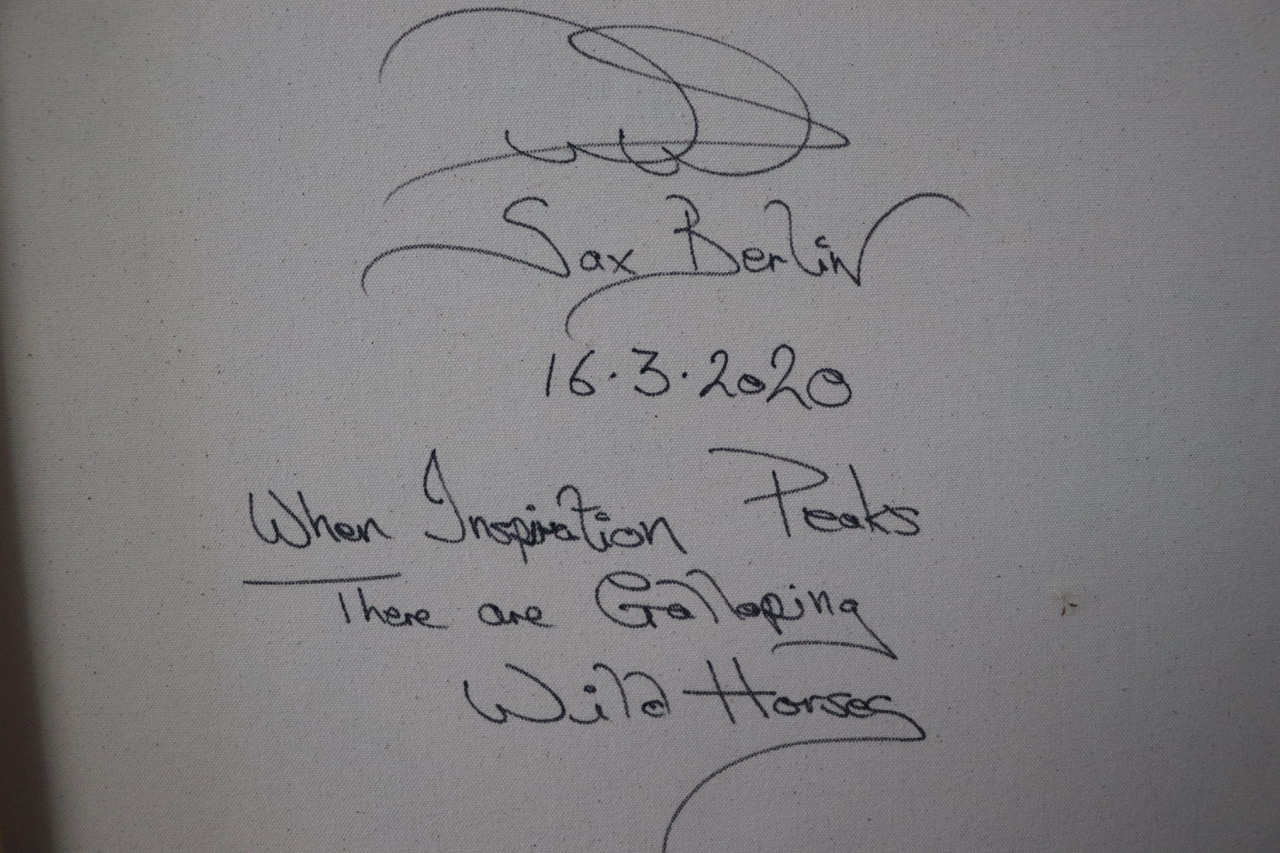 Sax Berlin
16.3.2020
When Inspiration Peaks
There are Galloping
Wild Horses